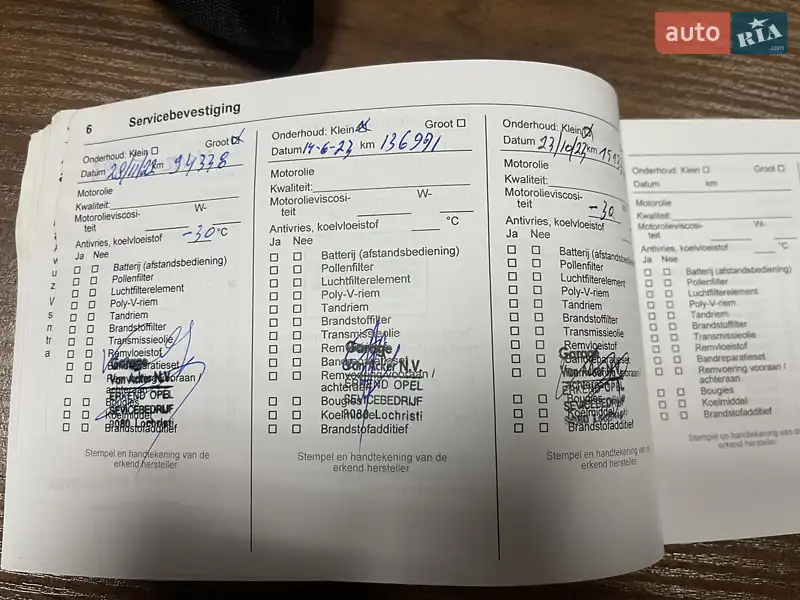 auto RIA .com
6 Servicebevestiging
Onderhoud: Klein Groot
Datum 29/11/22 km 94338
Motorolie
Kwaliteit:
Motorolieviscosi-
teit W-
Antivries, koelvloeistof -30 °C
Ja Nee
Batterij (afstandsbediening)
Pollenfilter
Luchtfilterelement
Poly-V-riem
Tandriem
Brandstoffilter
Transmissieolie
Remvloeistof
Bandreparatieset
Garage
Van Acker N.V.
ERKEND OPEL
Bougies
SEVICEBEDRIJF
Koelmiddel
9080 Lochristi
Brandstofadditief
Stempel en handtekening van de
erkend hersteller
Onderhoud: Klein Groot
Datum 14-6-23 km 136991
Motorolie
Kwaliteit:
Motorolieviscosi-
teit W-
Antivries, koelvloeistof °C
Ja Nee
Batterij (afstandsbediening)
Pollenfilter
Luchtfilterelement
Poly-V-riem
Tandriem
Brandstoffilter
Transmissieolie
Garage
Van Acker N.V.
Remvoering vooraan /
achteraan
ERKEND OPEL
SEVICEBEDRIJF
9080 Lochristi
Brandstofadditief
Stempel en handtekening van de
erkend hersteller
Onderhoud: Klein
Datum 23/10/23 km
Motorolie
Kwaliteit:
Motorolieviscosi-
teit -30
Antivries, koelvloeistof
Ja Nee
Batterij (afstandsbediening)
Pollenfilter
Luchtfilterelement
Poly-V-riem
Tandriem
Brandstoffilter
Transmissieolie
Remvloeistof
Garage
Van Acker N.V.
Brandstofadditief
Stempel en handtekening van de
erkend hersteller
Onderhoud: Klein Groot
Datum km
Motorolie
Kwaliteit:
Motorolieviscosi-
teit W-
Antivries, koelvloeistof °C
Ja Nee
Batterij (afstandsbediening)
Pollenfilter
Luchtfilterelement
Poly-V-riem
Tandriem
Brandstoffilter
Transmissieolie
Remvloeistof
Bandreparatieset
Remvoering vooraan /
achteraan
Bougies
Koelmiddel
Brandstofadditief
Stempel en handtekening van de
erkend hersteller